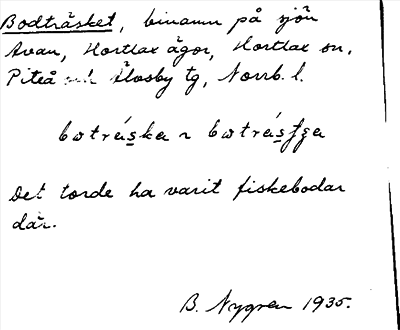 Bodträsket, binamn på sjön
Avan, Hortlax ägor, Hortlax sn,
Piteå och Älvsby tg, Norrb. l.
Det torde ha varit fiskebodar
där.
B. Nygren 1935.